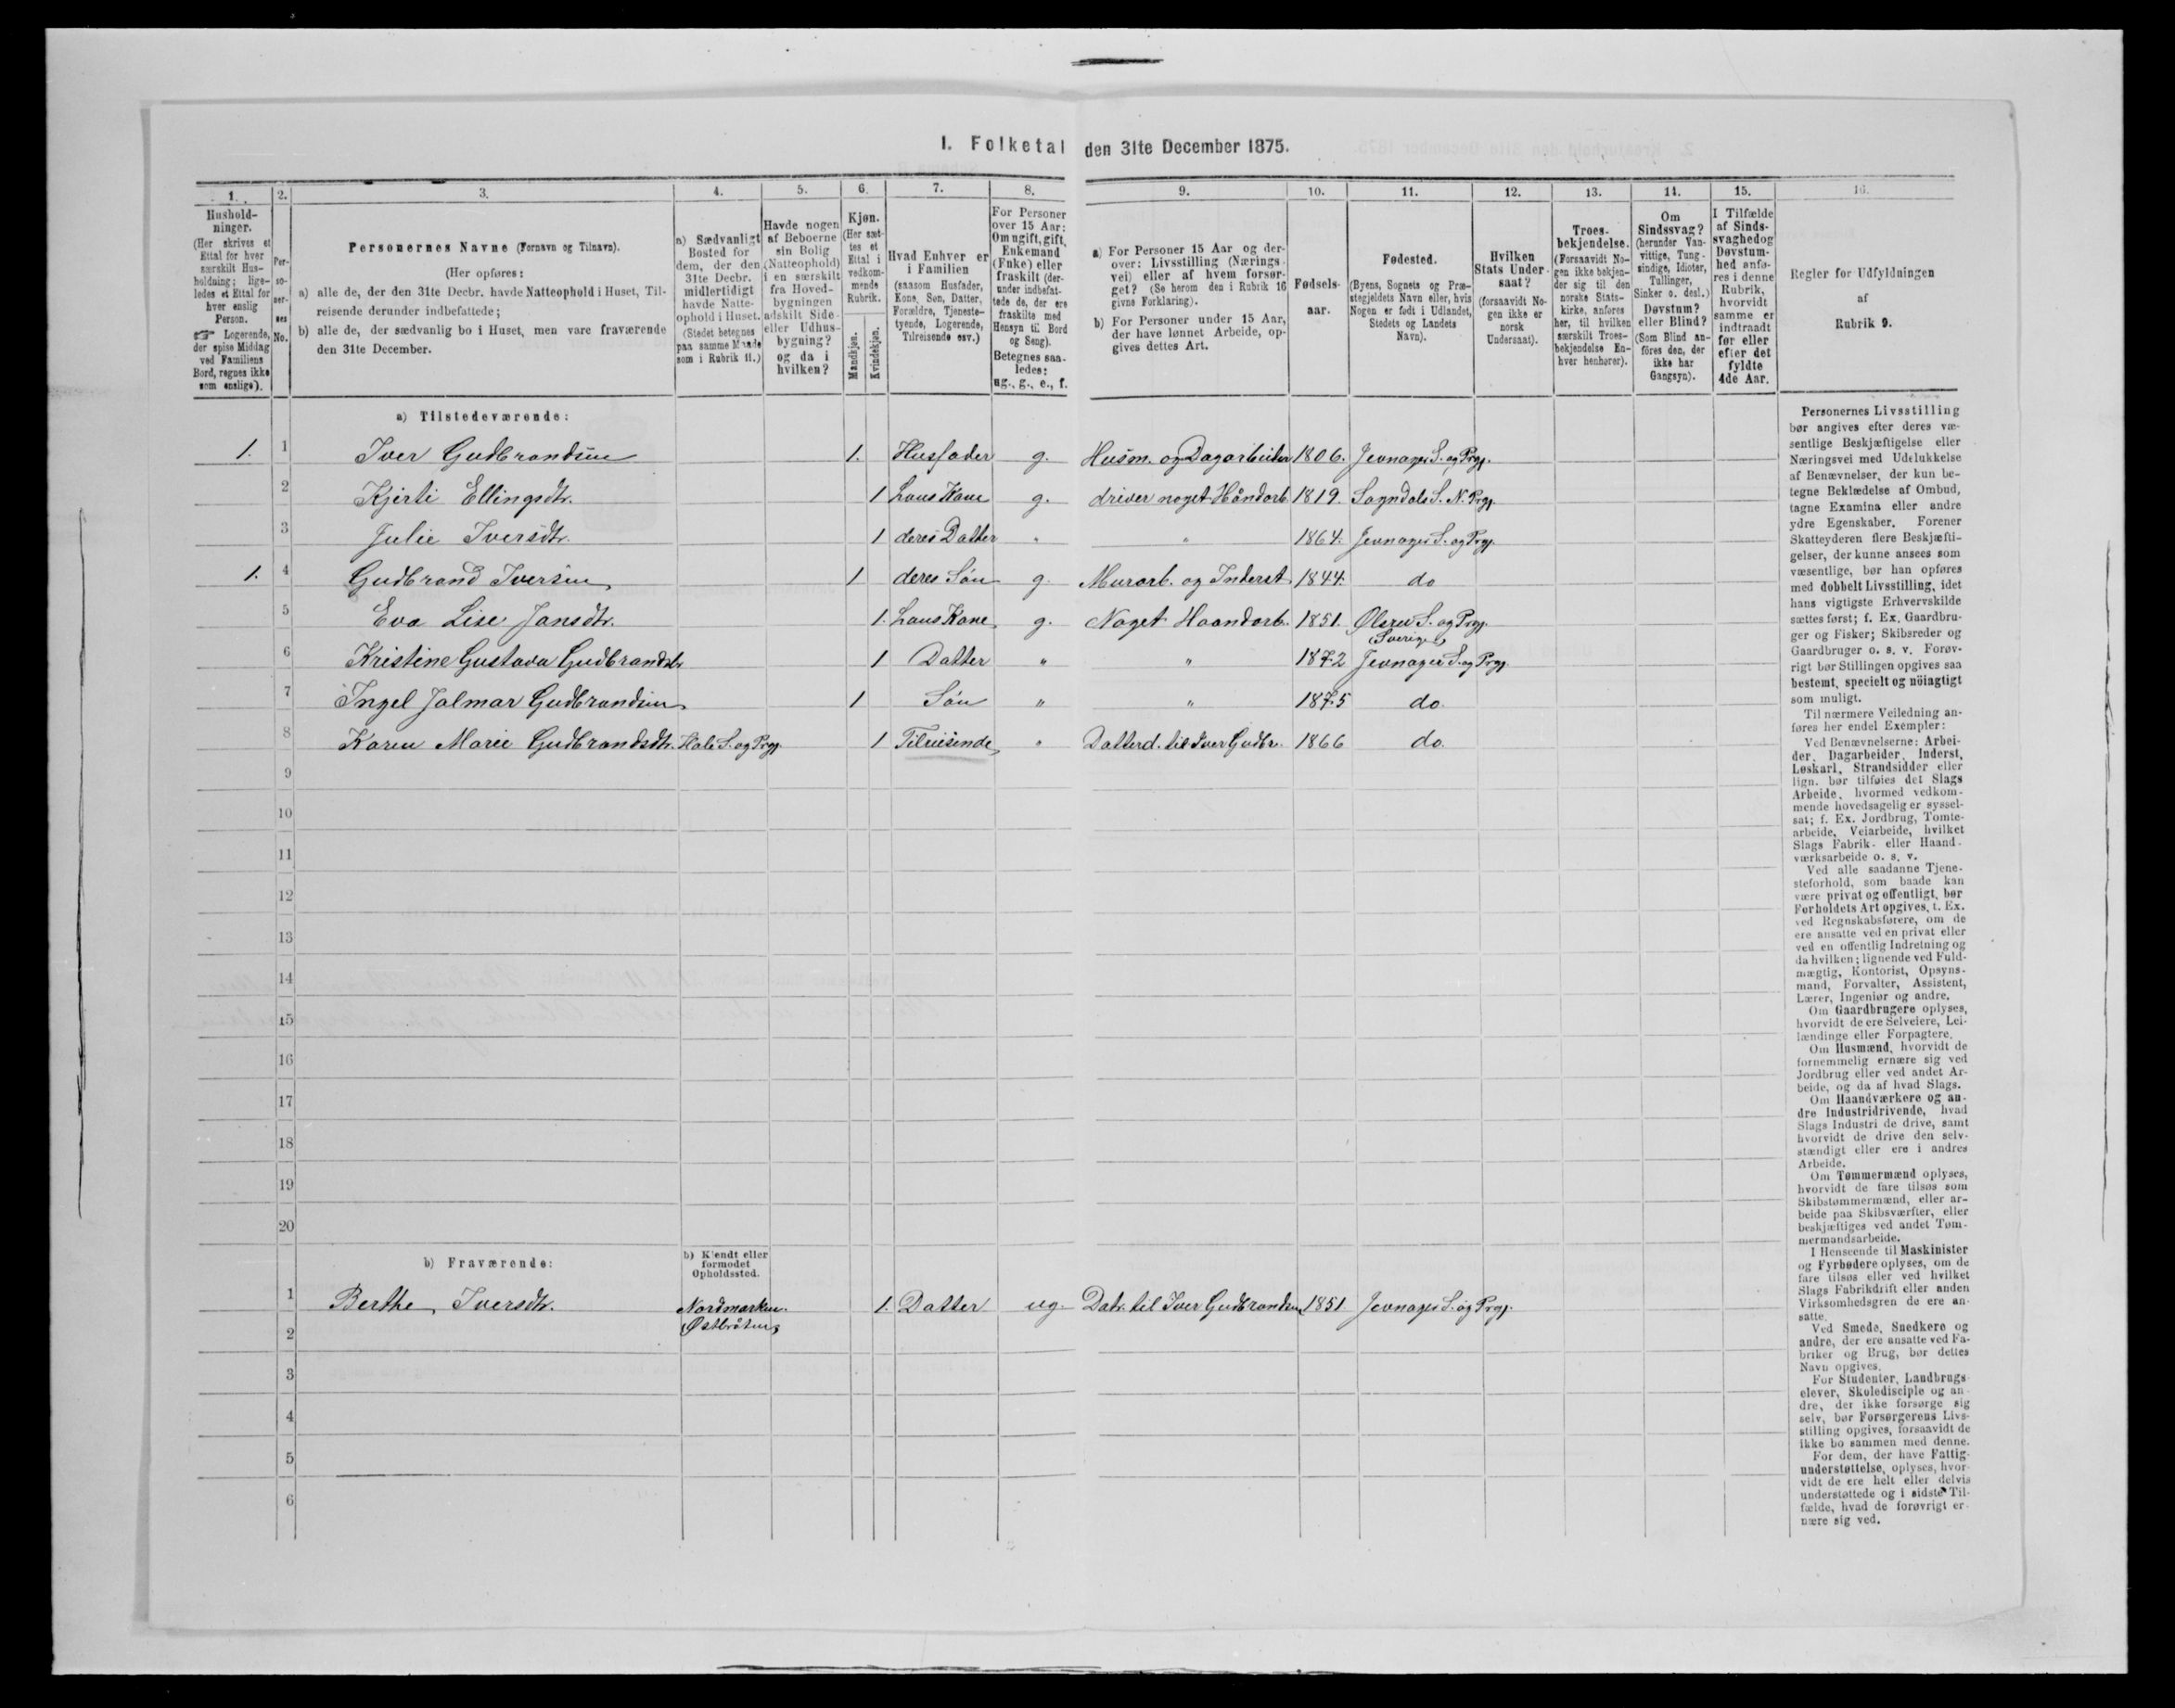 1. Folketal den 31te December 1875.
1. 2. 3. 4. 5. 6. 7. 8. 9. 10. 11. 12. 13. 14. 15. 16.
Hushold-
ninger.
(Her skrives et
Ettal for hver
særskilt Hus-
holdning; lige-
ledes et Ettal for
hver enslig
Person.
☞ Logerende,
der spise Middag
ved Familiens
Bord, regnes ikke
som enslige).
Per-
so-
ner-
nes
No.
Personernes Navne (Fornavn og Tilnavn).
(Her opføres:
a) alle de, der den 31te Decbr. havde Natteophold i Huset, Til-
reisende derunder indbefattede;
b) alle de, der sædvanlig bo i Huset, men vare fraværende
den 31te December.
a) Sædvanligt
Bosted for
dem, der den
31te Decbr.
midlertidigt
havde Natte-
ophold i Huset.
(Stedet betegnes
paa samme Maade
som i Rubrik 11.)
Havde nogen
af Beboerne
sin Bolig
(Natteophold)
i en særskilt
fra Hoved-
bygningen
adskilt Side-
eller Udhus-
bygning?
og da i
hvilken?
Kjøn.
(Her sæt-
tes et
Ettal i
vedkom-
mende
Rubrik.
Mandkjøn.
Kvindekjøn.
Hvad Enhver er
i Familien
(saasom Husfader,
Kone, Søn, Datter,
Forældre, Tjeneste-
tyende, Logerende,
Tilreisende osv.)
For Personer
over 15 Aar:
Om ugift, gift,
Enkemand
(Enke) eller
fraskilt (der-
under indbefat-
tede de, der ere
fraskilte med
Hensyn til Bord
og Seng).
Betegnes saa-
ledes:
ug., g., e., f.
a) For Personer 15 Aar og der-
over: Livsstilling (Nærings-
vei) eller af hvem forsør-
get? (Se herom den i Rubrik 16
givne Forklaring).
b) For Personer under 15 Aar,
der have lønnet Arbeide, op-
gives dettes Art.
Fødsels-
aar.
Fødested.
(Byens, Sognets og Præ-
stegjeldets Navn eller, hvis
Nogen er født i Udlandet,
Stedets og Landets
Navn).
Hvilken
Stats Under-
saat?
(forsaavidt No-
gen ikke er
norsk
Undersaat).
Troes-
bekjendelse.
(Forsaavidt No-
gen ikke bekjen-
der sig til den
norske Stats-
kirke, anføres
her, til hvilken
særskilt Troes-
bekjendelse En-
hver henhører).
Om
Sindssvag?
(herunder Van-
vittige, Tung-
sindige, Idioter,
Tullinger,
Sinker o. desl.)
Døvstum?
eller Blind?
(Som Blind an-
föres den, der
ikke har
Gangsyn).
I Tilfælde
af Sinds-
svaghed og
Døvstum-
hed anfø-
res i denne
Rubrik,
hvorvidt
samme er
indtraadt
før eller
efter det
fyldte
4de Aar.
Regler for Udfyldningen
af
Rubrik 9.
a) Tilstedeværende:
1. 1 Iver Gudbrandsen 1. Husfader g. Husm. og Dagarbeider 1806. Jevnager S. og Prgj.
2 Kjersti Ellingsdtr. 1 hans Kone g. driver noget Håndarb. 1819. Sogndals S. N. Prgj.
3 Julie Iversdtr. 1 deres Datter " " 1864. Jevnager S. og Prgj.
1. 4 Gudbrand Iversen 1 deres Søn g. Murarb. og Inderst 1844. do
5 Eva Lise Jansdtr. 1. hans Kone g. Noget Haandarb. 1851. S. og Prgj.
(Sverige)
6 Kristine Gustava Gudbrandsdtr. 1 Datter " " 1872 Jevnager S. og Prgj.
7 Ingel Jalmar Gudbrandsen 1 Søn " " 1875 do.
8 Karen Marie Gudbrandsdtr. Hole S. og Prgj. 1 Tilreisende " Datterd. til Iver Gudbr. 1866 do.
9
10
11
12
13
14
15
16
17
18
19
20
b) Fraværende:
b) Kjendt eller
formodet
Opholdssted.
1 Berthe Iversdtr. Nordmarken. 1. Datter ug. Datr. til Iver Gudbrandsen 1851. Jevnager S. og Prgj.
2 (Østbråten)
3
4
5
6
Personernes Livsstilling
bør angives efter deres væ-
sentlige Beskjæftigelse eller
Næringsvei med Udelukkelse
af Benævnelser, der kun be-
tegne Beklædelse af Ombud,
tagne Examina eller andre
ydre Egenskaber. Forener
Skatteyderen flere Beskjæfti-
gelser, der kunne ansees som
væsentlige, bør han opføres
med dobbelt Livsstilling, idet
hans vigtigste Erhvervskilde
sættes først; f. Ex. Gaardbru-
ger og Fisker; Skibsreder og
Gaardbruger o. s. v. Forøv-
rigt bør Stillingen opgives saa
bestemt, specielt og nöiagtigt
som muligt.
Til nærmere Veiledning an-
føres her endel Exempler:
Ved Benævnelserne: Arbei-
der, Dagarbeider, Inderst,
Løskarl, Strandsidder eller
lign. bør tilføies det Slags
Arbeide, hvormed vedkom-
mende hovedsagelig er syssel-
sat; f. Ex. Jordbrug, Tomte-
arbeide, Veiarbeide, hvilket
Slags Fabrik- eller Haand-
værksarbeide o. s. v.
Ved alle saadanne Tjene-
steforhold, som baade kan
være privat og offentligt, bør
Forholdets Art opgives, t. Ex.
ved Regnskabsførere, om de
ere ansatte ved en privat eller
ved en offentlig Indretning og
da hvilken; lignende ved Fuld-
mægtig, Kontorist, Opsyns-
mand, Forvalter, Assistent,
Lærer, Ingeniør og andre.
Om Gaardbrugere oplyses,
hvorvidt de ere Selveiere, Lei-
lændinge eller Forpagtere.
Om Husmænd, hvorvidt de
fornemmelig ernære sig ved
Jordbrug eller ved andet Ar-
beide, og da af hvad Slags.
Om Haandværkere og an-
dre Industridrivende, hvad
Slags Industri de drive, samt
hvorvidt de drive den selv-
stændigt eller ere i andres
Arbeide.
Om Tømmermænd oplyses,
hvorvidt de fare tilsøs som
Skibstømmermænd, eller ar-
beide paa Skibsværfter, eller
beskjæftiges ved andet Tøm-
mermandsarbeide.
I Henseende til Maskinister
og Fyrbødere oplyses, om de
fare tilsøs eller ved hvilket
Slags Fabrikdrift eller anden
Virksomhedsgren de ere an-
satte.
Ved Smede, Snedkere og
andre, der ere ansatte ved Fa-
briker og Brug, bør dettes
Navn opgives.
For Studenter, Landbrugs-
elever, Skoledisciple og an-
dre, der ikke forsørge sig
selv, bør Forsørgerens Livs-
stilling opgives, forsaavidt de
ikke bo sammen med denne.
For dem, der have Fattig-
understøttelse, oplyses, hvor-
vidt de ere helt eller delvis
understøttede og i sidste Til-
fælde, hvad de forøvrigt er-
nære sig ved.